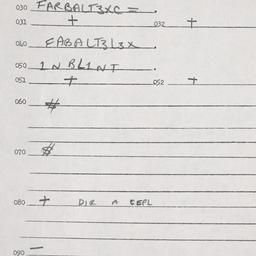 030 FARBALT3XC = .
031 + 032 +
040 FABALT3L3X .
050 1 N BL1 NT .
051 + 052 +
060 #
070 $
080 + DIR A CEPL
090 —